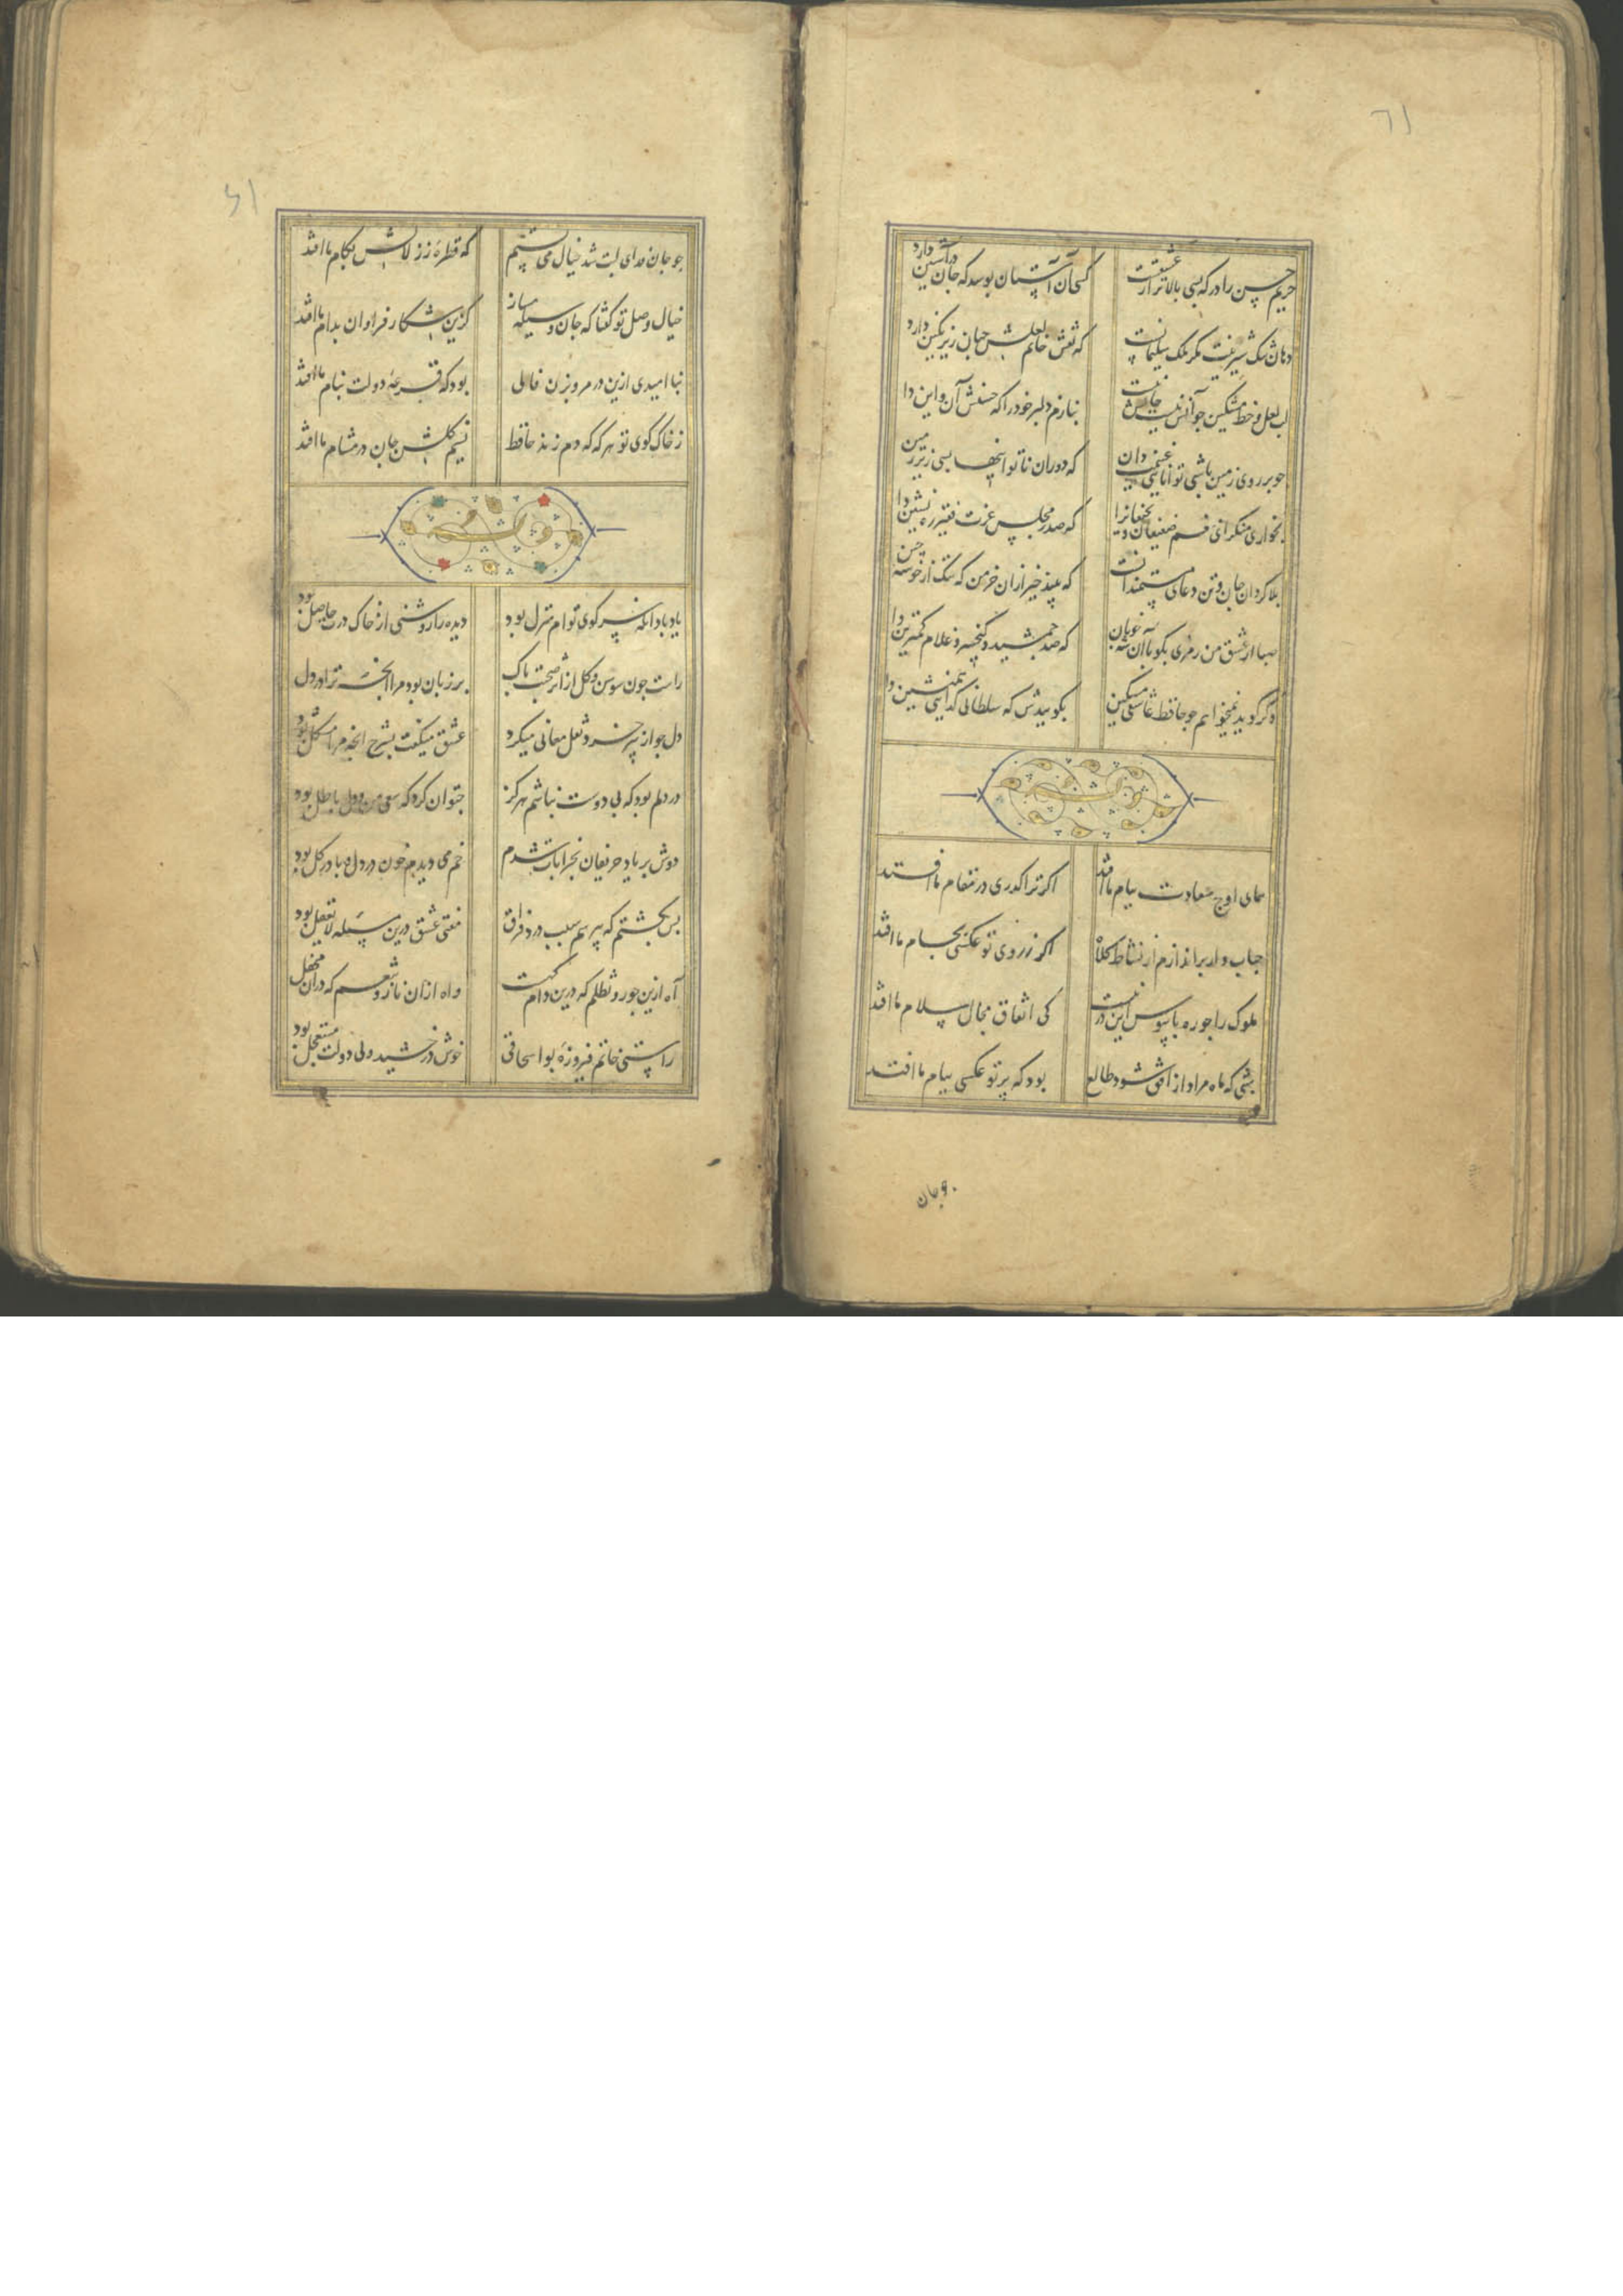 ٦١
حریم حسن را درکه بسی بالاتر از عشقست
کسی آن آستان بوسد که جان در آستین دارد
دهان تنک شیرینت مکر ملک سلیمانست
که نقش خاتم لعلش جهان زیر نکین دارد
لب لعل و خط مشکین جو آنش نیست اینش
بنازم دلبر خود را که حسنش آن و این دا
جو بر روی زمین باشی توانایی غنیمت دان
که دوران ناتوانیها بسی زیر زمین
بخواری منکر ای منعم ضعیفان و نحیفانرا
که صدر مجلس عزت فقیر ره نشین دا
بلا کردان جان و تن دعای مستمندانست
که بیند خیر از آن خرمن که ننک از خوشه چین
صبا از عشق من رمزی بکو با آن شه خوبان
که صد جمشید و کیخسرو غلام کمترین دا
و کر کوید نمیخواهم جو حافظ عاشق مسکین
بکوییدش که سلطانی کدایی همنشین دا
همای اوج سعادت بدام ما افتد
اکر ترا کذری در مقام ما افتد
حباب وار براندازم از نشاط کلاه
اکر ز روی تو عکسی بجام ما افتد
ملوک را جو ره پابوس این در نیست
کی اتفاق مجال سلام ما افتد
شبی که ماه مراد از افق شود طالع
بود که پرتو عکسی ببام ما افتد
جو جان
٦١
جو جان فدای لبت شد خیال می بستم
که قطرهٔ ز زلالش بکام ما افتد
خیال وصل تو کفتا که جان وسیله مساز
کزین شکار فراوان بدام ما افتد
بنا امیدی ازین در مرو بزن فالی
بود که قرعهٔ دولت بنام ما افتد
ز خاک کوی تو هر که که دم زند حافظ
نسیم کلشن جان در مشام ما افتد
وله
یاد باد آنکه سر کوی توام منزل بود
دیده را روشنی از خاک درت حاصل بود
راست جون سوسن و کل از اثر صحبت پاک
بر زبان بود مرا آنچه ترا در دل
دل جو از پیر خرد نقل معانی میکرد
عشق میکفت بشرح آنچه مرا مشکل بود
در دلم بود که بی دوست نباشم هرکز
جتوان کرد که سعی من و دل باطل بود
دوش بر یاد حریفان بخرابات شدم
خم می دیدم خون در دل و پا در کل بود
بس بکشتم که بپرسم سبب درد فراق
مفتی عشق درین مسئله لا یعقل بود
آه ازین جور و تظلم که درین دامکهست
واه از آن ناز و تنعم که در آن محفل
راستی خاتم فیروزهٔ بواسحاقی
خوش درخشید ولی دولت مستعجل بود